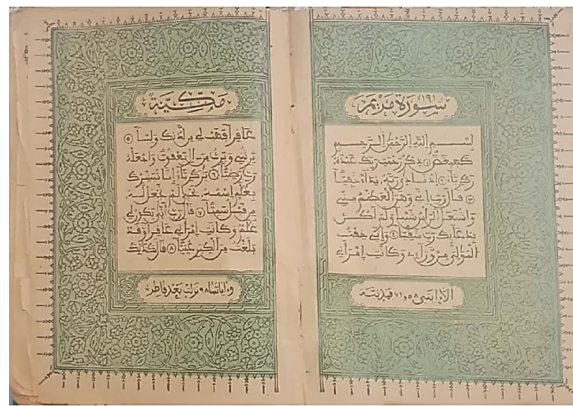 سورة مريم
بسم الله الرحمن الرحيم
كهيعص ذكر رحمت ربك عبده
زكريا إذ نادى ربه نداء خفيا
قال رب إني وهن العظم مني
واشتعل الرأس شيبا ولم أكن
بدعائك رب شقيا وإني خفت
الموالي من وراءي وكانت امرأتي
إلا آيتي ٥٨ و ٧١
مكية
عاقرا فهب لي من لدنك وليا ٥
يرثني ويرث من آل يعقوب واجعله
رب رضيا ٦ يزكريا إنا نبشرك
بغلم اسمه يحيى لم نجعل له
من قبل سميا ٧ قال رب أنى يكون لي
غلم وكانت امرأتي عاقرا وقد
بلغت من الكبر عتيا ٨ قال كذلك
وآياتها ٩٨ نزلت بعد فاطر